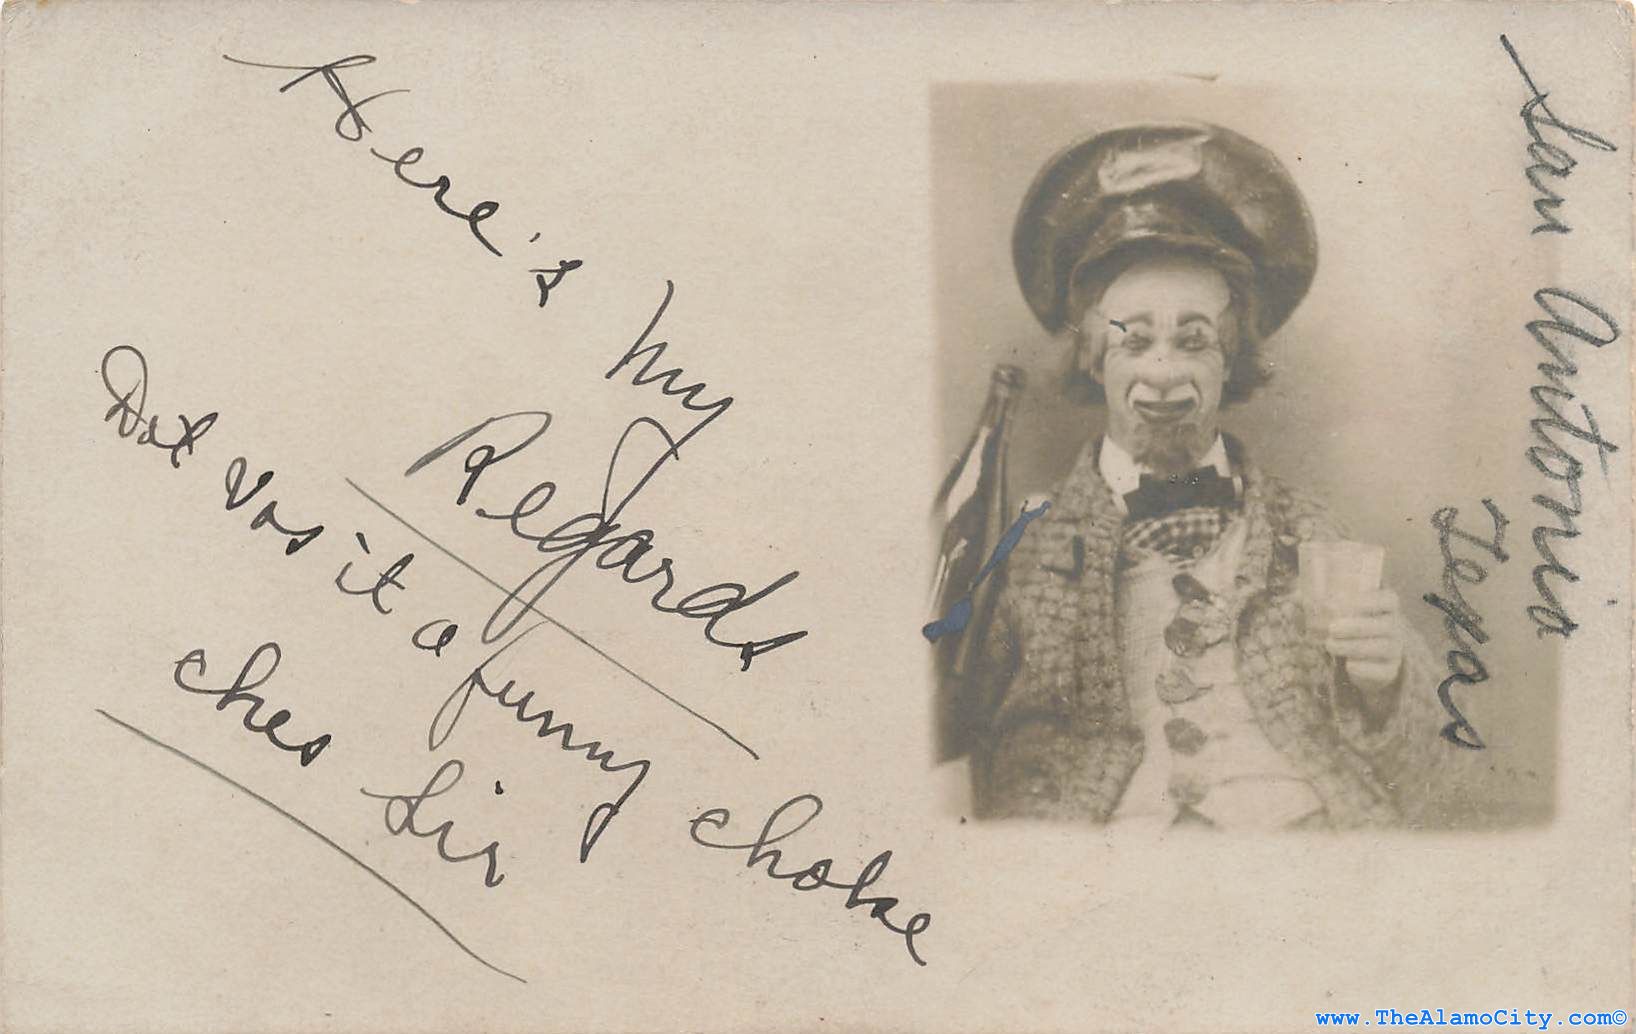 Here's my
Regards
Dat vos it a funny choke
ches Sir
San Antonio
Texas
www.TheAlamoCity.com©